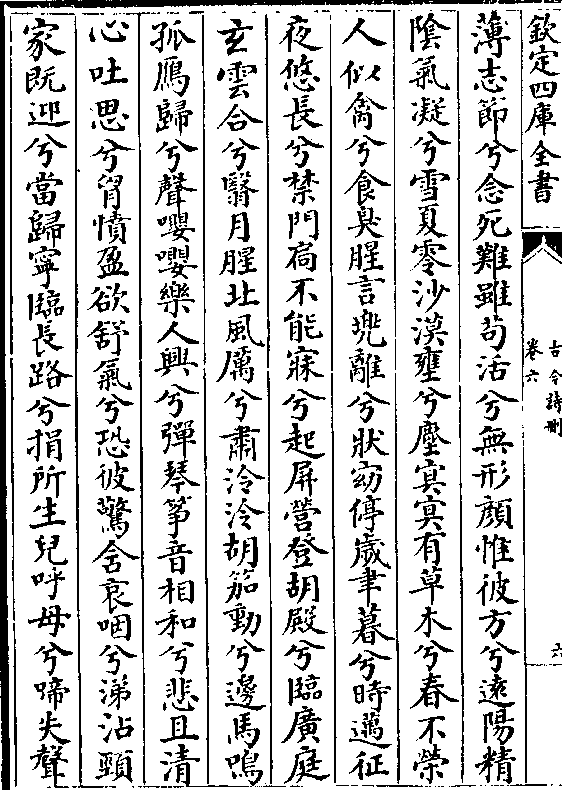 欽定四庫全書
古今詩刪
卷六
六
薄志節兮念死難雖茍活兮無形顔惟彼方兮遠陽精
陰氣凝兮雪夏零沙漠壅兮塵㝠㝠有草木兮春不榮
人似禽兮食臭腥言兠離兮狀窈停歲聿暮兮時邁征
夜悠長兮禁門扃不能寐兮起屏營登胡殿兮臨廣庭
玄雲合兮翳月腥北風厲兮肅泠泠胡笳動兮邊馬鳴
孤鴈歸兮聲嚶嚶樂人興兮彈琴筝音相和兮悲且清
心吐思兮胷憤盈欲舒氣兮恐彼驚含哀咽兮涕沾頸
家既迎兮當歸寧臨長路兮捐所生兒呼母兮啼失聲